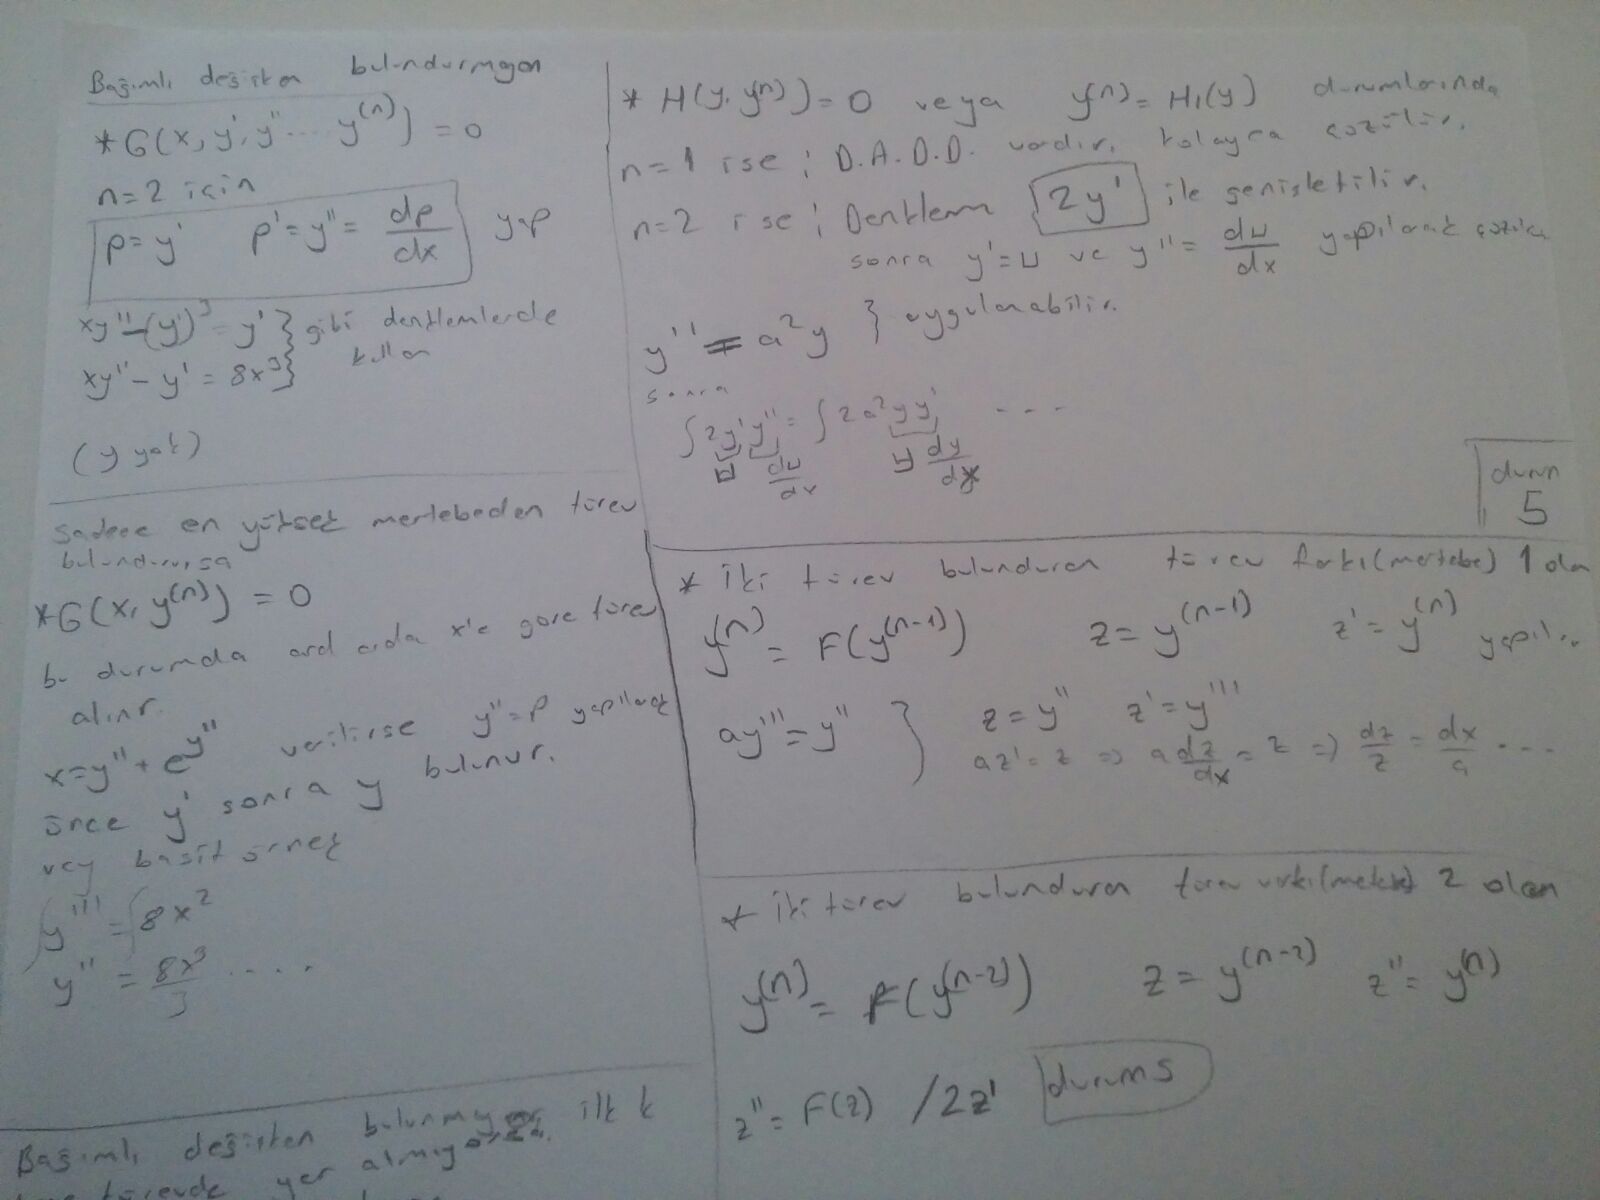 Bağımlı değişken bulundurmayan
* G(x, y', y'' .... y^(n)) = 0
n=2 için
p = y'   p' = y'' = dp/dx   yap
xy'' - (y')^3 = y' } gibi denklemlerde
xy'' - y' = 8x^3 } kullan
(y yok)
Sadece en yüksek mertebeden türev
bulundurursa
* G(x, y^(n)) = 0
bu durumda ard arda x'e göre türev
alınır.
x = y'' + e^y'' verilirse y'' = p yapılarak
önce y' sonra y bulunur.
vey basit örnek
∫y''' = ∫8x^2
y'' = 8x^3/3 ....
Bağımlı değişken bulunmayan ilk k
türevde yer almıyorsa
* H(y, y^(n)) = 0 veya y^(n) = H₁(y) durumlarında
n=1 ise ; D.A.D.D. vardır, kolayca çözülür.
n=2 ise ; Denklem 2y' ile genişletilir.
sonra y' = u ve y'' = du/dx yapılarak çözülür
y'' = a^2 y } uygulanabilir.
sonra
∫2y'y'' = ∫2a^2yy' ....
u du/dx   y dy/dx
durum
5
* iki türev bulunduran türev farkı(mertebe) 1 olan
y^(n) = F(y^(n-1))   z = y^(n-1)   z' = y^(n) yapılır
ay''' = y'' }   z = y''   z' = y'''
az' = z => a dz/dx = z => dz/z = dx/a ....
* iki türev bulunduran türev farkı(mertebe) 2 olan
y^(n) = F(y^(n-2))   z = y^(n-2)   z'' = y^(n)
z'' = F(z) /2z' durum5